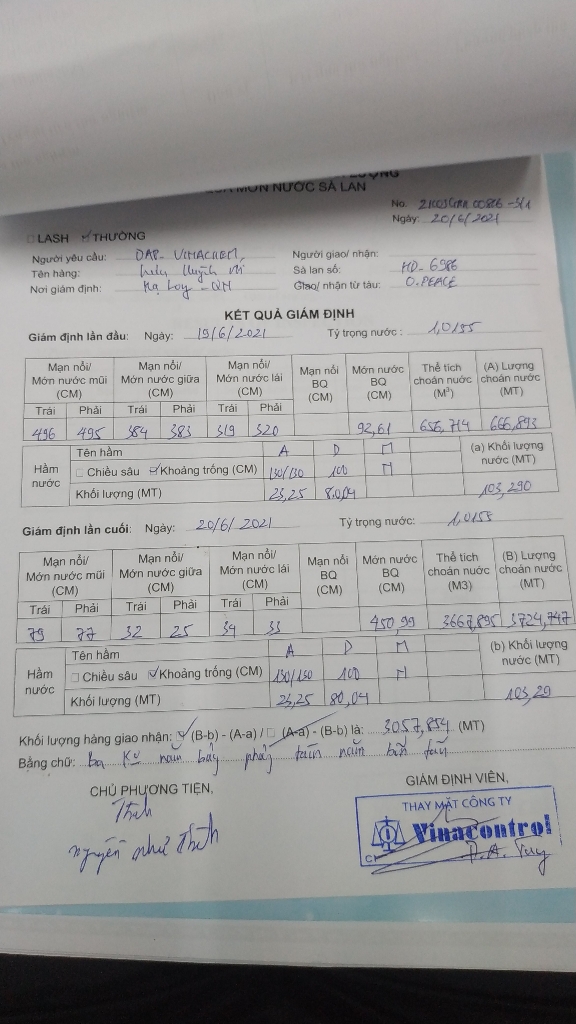 QUA MỚN NƯỚC SÀ LAN
No.
Ngày: 20/6/2021
LASH THƯỜNG
Người yêu cầu: DAP-VINACHEM, Người giao/ nhận:
Tên hàng: Lưu huỳnh Sà lan số: HD-6986
Nơi giám định: Hạ Long - QN Giao/ nhận từ tàu: O.PEACE
KẾT QUẢ GIÁM ĐỊNH
Giám định lần đầu: Ngày: 19/6/2021 Tỷ trọng nước: 1,0155
Mạn nổi/ Mớn nước mũi (CM) Mạn nổi/ Mớn nước giữa (CM) Mạn nổi/ Mớn nước lái (CM) Mạn nổi BQ (CM) Mớn nước BQ (CM) Thể tích choán nước (M³) (A) Lượng choán nước (MT)
Trái Phải Trái Phải Trái Phải
496 495 384 383 319 320 92,61 656,714 666,893
Hầm nước Tên hầm A D M (a) Khối lượng nước (MT)
Chiều sâu Khoảng trống (CM) 130/130 100 M
Khối lượng (MT) 23,25 80,04 103,290
Giám định lần cuối: Ngày: 20/6/2021 Tỷ trọng nước: 1,0155
Mạn nổi/ Mớn nước mũi (CM) Mạn nổi/ Mớn nước giữa (CM) Mạn nổi/ Mớn nước lái (CM) Mạn nổi BQ (CM) Mớn nước BQ (CM) Thể tích choán nước (M3) (B) Lượng choán nước (MT)
Trái Phải Trái Phải Trái Phải
79 77 32 25 34 33 450,99 3667,895 3724,747
Hầm nước Tên hầm A D M (b) Khối lượng nước (MT)
Chiều sâu Khoảng trống (CM) 130/130 100 M
Khối lượng (MT) 23,25 80,04 103,29
Khối lượng hàng giao nhận: (B-b) - (A-a) / (A-a) - (B-b) là: 3057,854 (MT)
Bằng chữ: Ba năm bảy phẩy tám năm bốn tấn
CHỦ PHƯƠNG TIỆN, GIÁM ĐỊNH VIÊN,
Thình
Nguyễn như Thình
THAY MẶT CÔNG TY
Vinacontrol